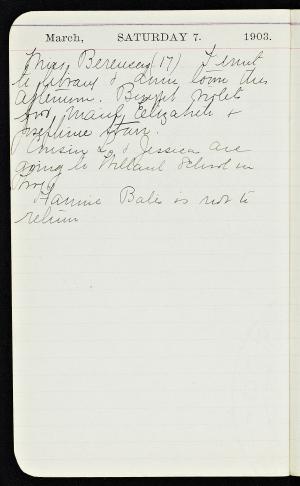 March, SATURDAY 7. 1903.
Miss Berenson (17) I went
to library & down town this
afternoon. Bought violets
for Marif, Elizabeth &
Josephine Starr.
Cousin L. & Jessica are
going to Willard School in
Troy
Fannie Bates is not to
return